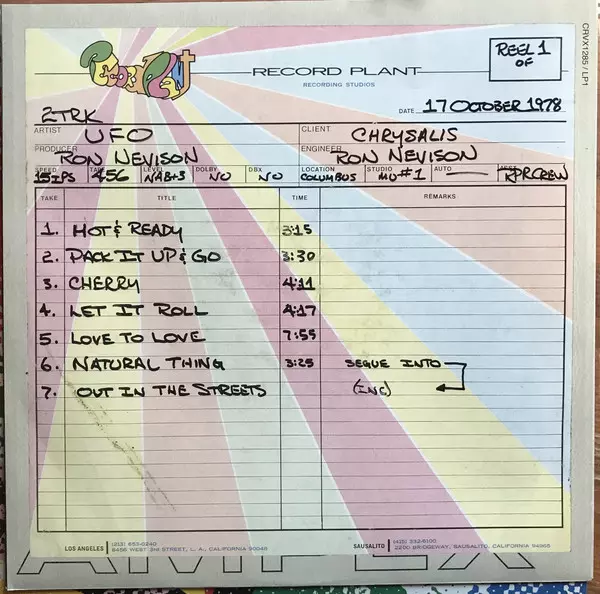 CRVX1285 / LP1
REEL 1
OF
Record Plant
RECORD PLANT
RECORDING STUDIOS
DATE 17 OCTOBER 1978
2TRK
ARTIST UFO CLIENT CHRYSALIS
PRODUCER RON NEVISON ENGINEER RON NEVISON
SPEED 15IPS TAPE 456 LEVEL NAB+3 DOLBY NO DBX NO LOCATION COLUMBUS STUDIO MU#1 AUTO — ASST. RPR CREW
TAKE TITLE TIME REMARKS
1. HOT & READY 3:15
2. PACK IT UP & GO 3:30
3. CHERRY 4:11
4. LET IT ROLL 4:17
5. LOVE TO LOVE 7:55
6. NATURAL THING 3:25 SEGUE INTO
7. OUT IN THE STREETS (INC)
LOS ANGELES (213) 653-0240
8456 WEST 3RD STREET, L. A., CALIFORNIA 90048
SAUSALITO (415) 332-6100
2200 BRIDGEWAY, SAUSALITO, CALIFORNIA 94965
AMPEX